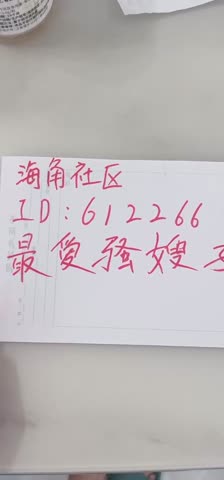 海角社区
ID:612266
最爱骚嫂